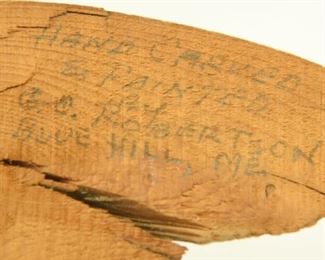 HAND CARVED
& PAINTED
BY
G. O. ROBERTSON
BLUE HILL, ME.